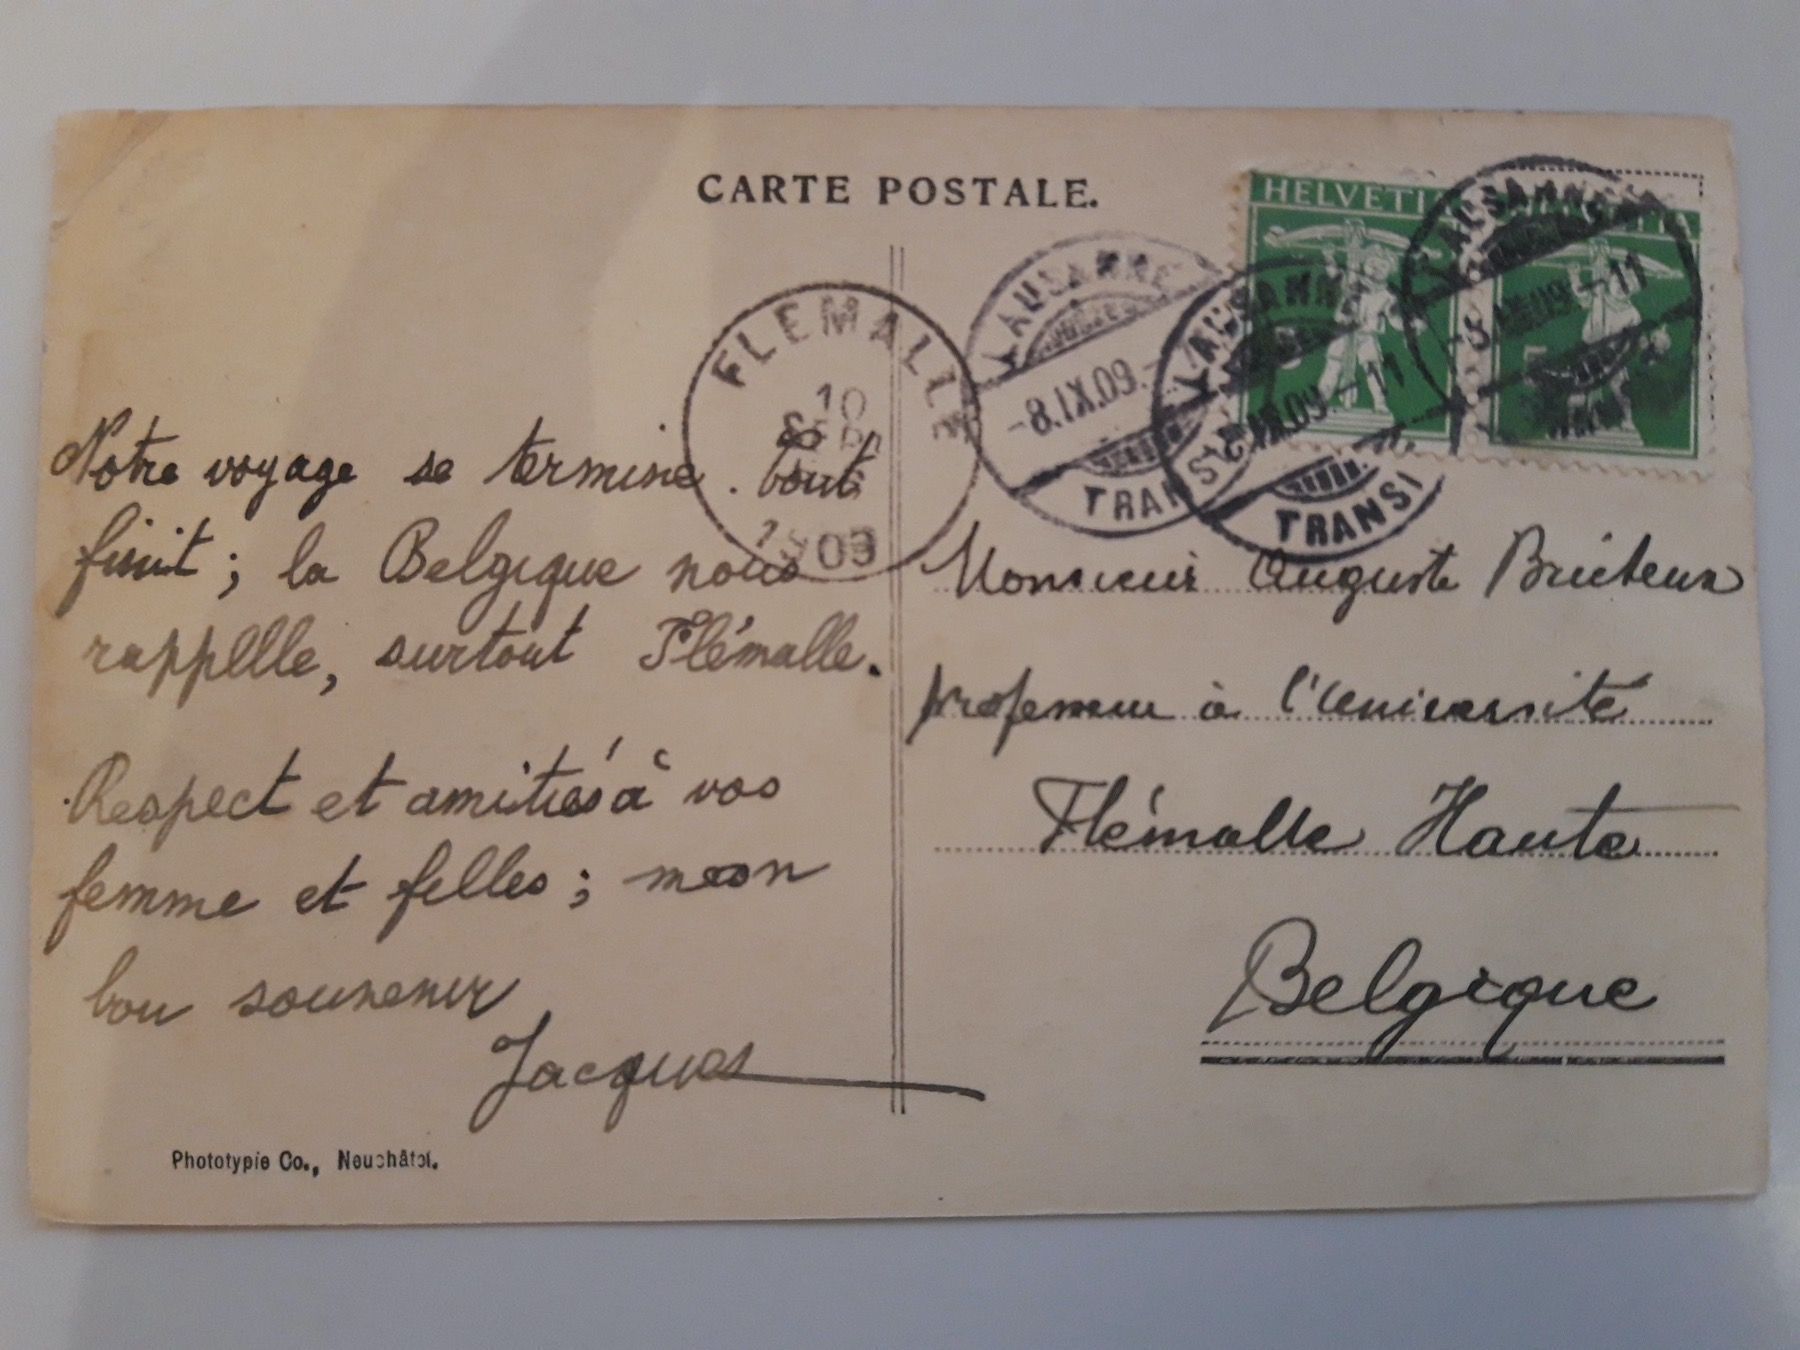 CARTE POSTALE.
HELVETIA
HELVETIA
5
LAUSANNE
-8.IX.09.-
TRANSIT
LAUSANNE
-8.IX.09.-11
TRANSIT
LAUSANNE
-8.IX.09.-11
FLEMALLE
10
SEPT
1909
Notre voyage se termine. tout
finit; la Belgique nous
rappelle, surtout Flémalle.
Respect et amitiés à vos
femme et filles; mon
bon souvenir
Jacques
Monsieur Auguste Bricteux
professeur à l'Université
Flémalle Haute
Belgique
Phototypie Co., Neuchâtel.